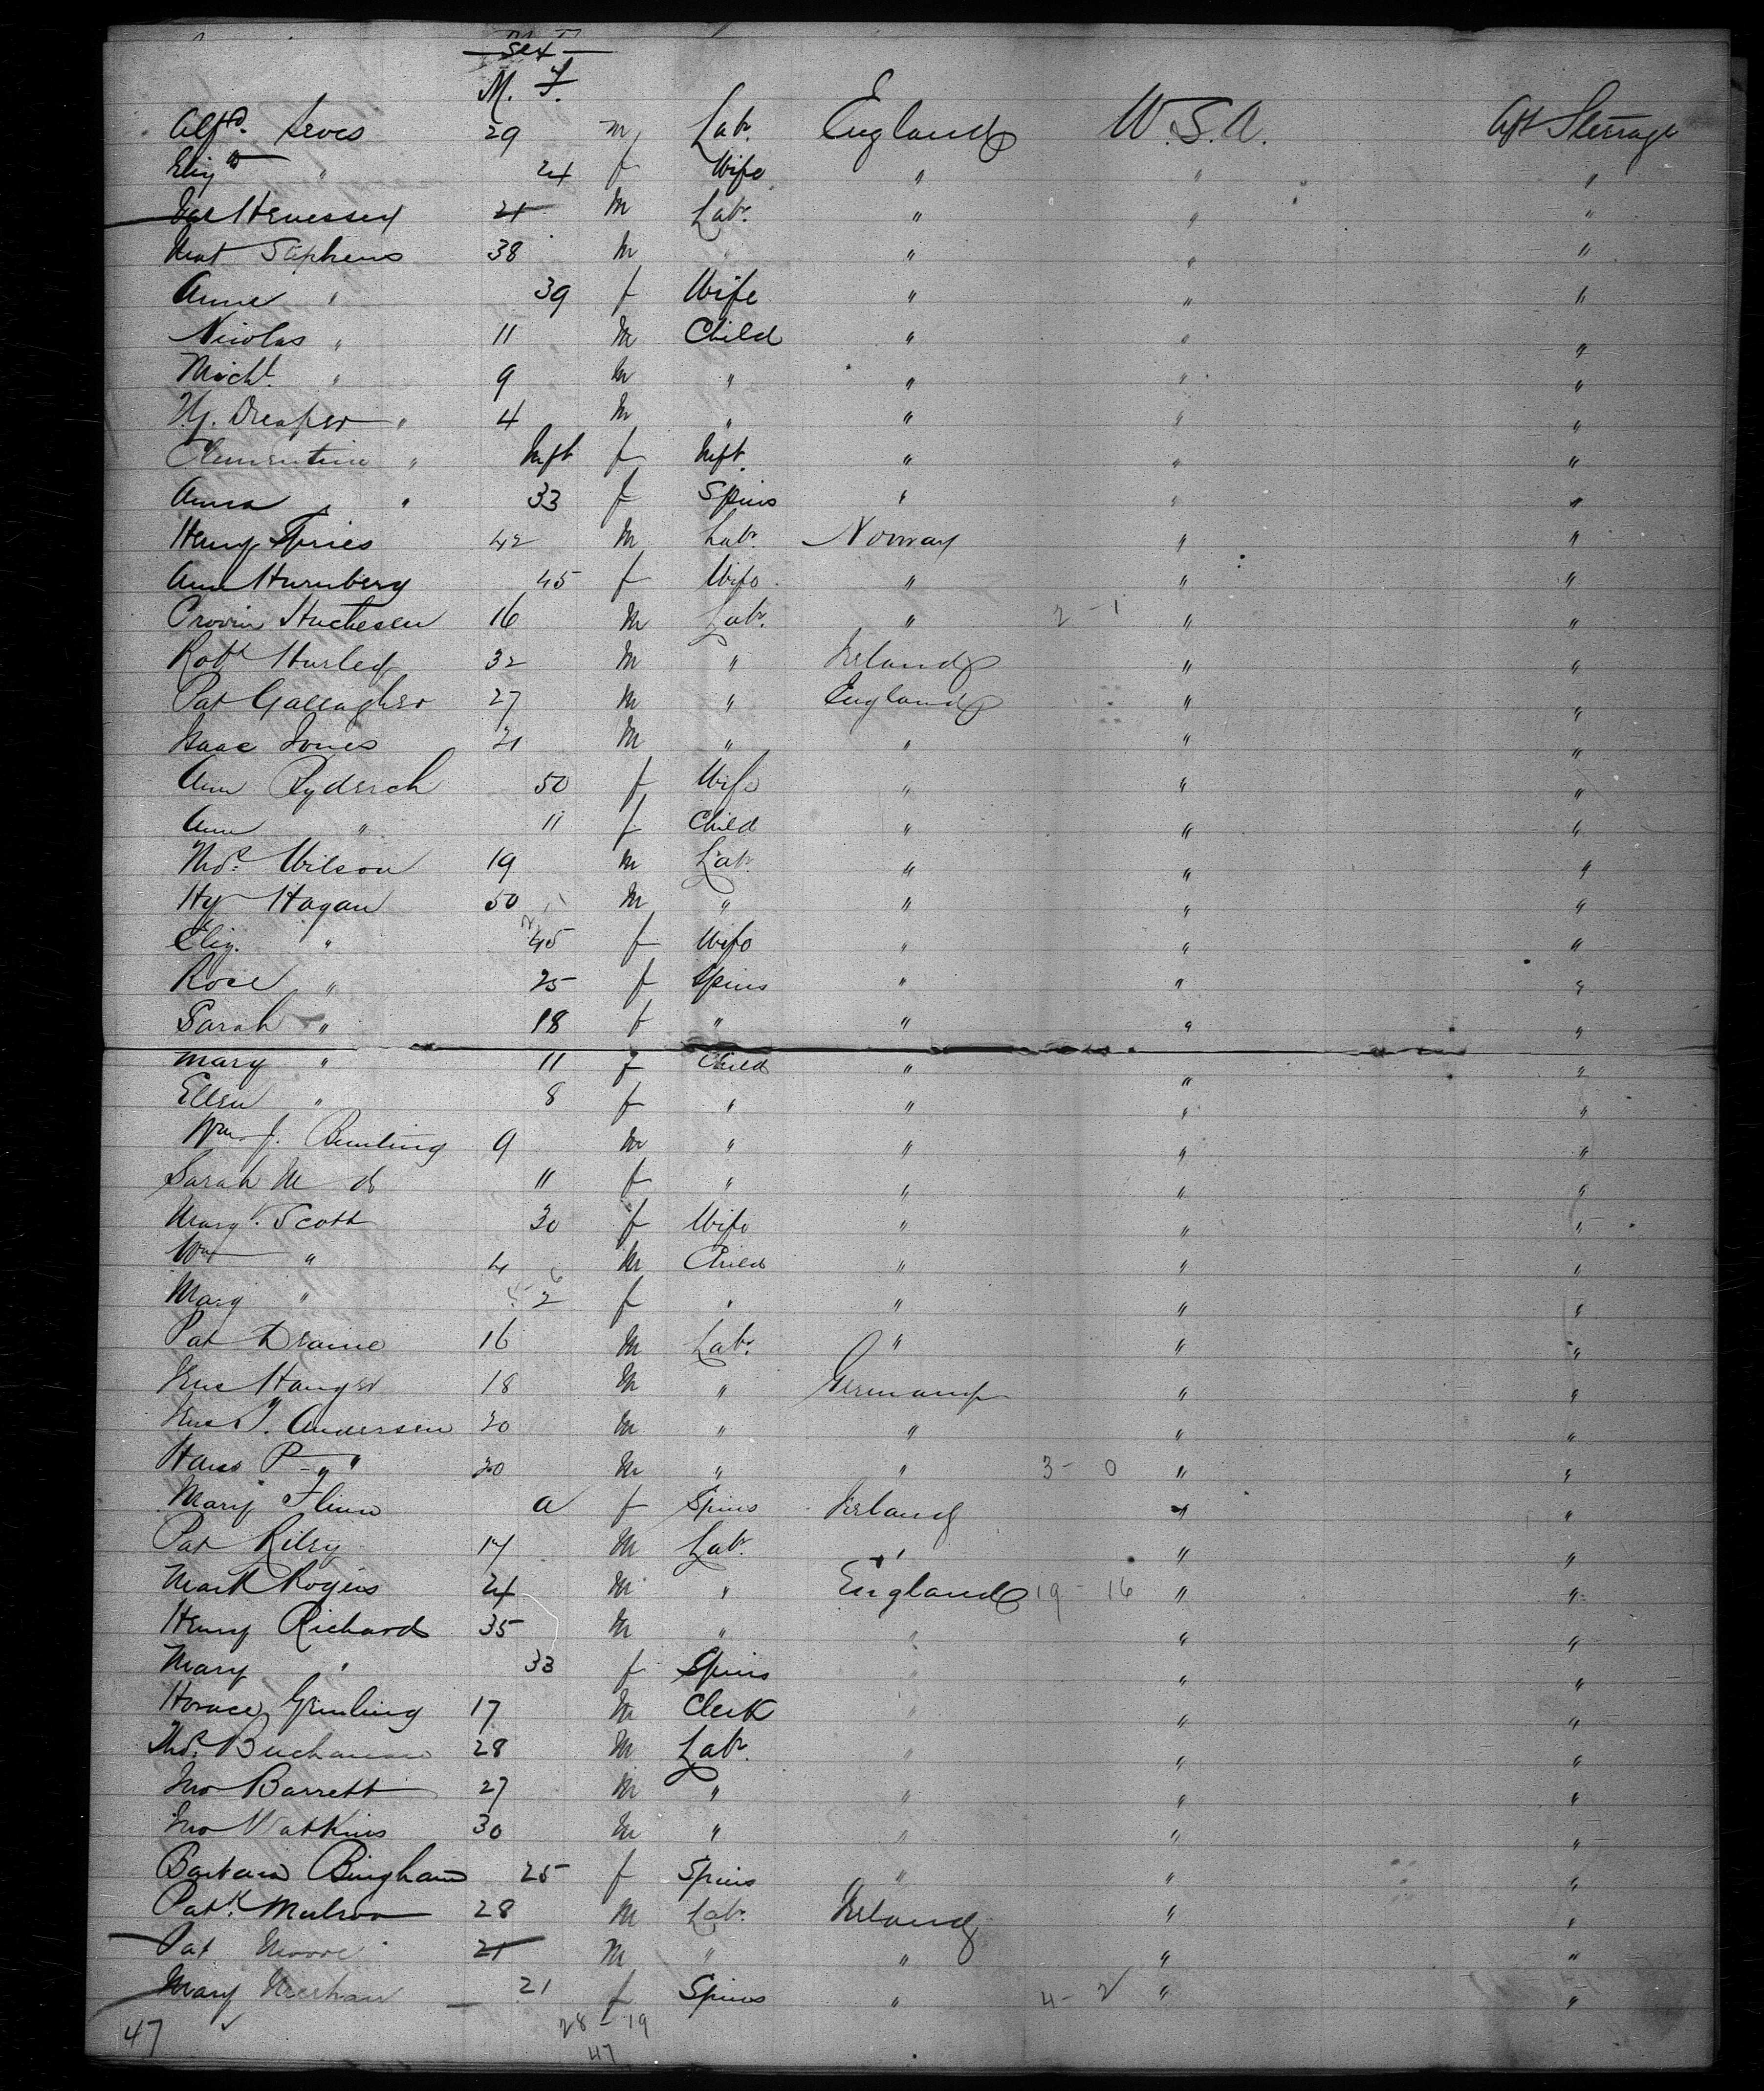 Sex
M. F.
Alfd. 29 m Labr. England U.S.A. Aft Steerage
Eliz " 24 f Wife " " "
Hennessey 21 m Labr. " " "
Stephens 38 m " " " "
Anne " 39 f Wife " " "
Nicolas " 11 m Child " " "
Michl. " 9 m " " " "
Hy. Draper " 4 m " " " "
Clementine " Inft f Inft. " " "
Anna " 33 f Spins " " "
Henry Spries 42 m Labr. Norway " "
Ann Hurnberg 45 f Wife " " "
Huchesen 16 m Labr. " 2 - 1 " "
Robt Hurley 32 m " Ireland " "
Pat Gallagher 27 m " England " "
Isaac Jones 21 m " " " "
Ann Ryderch 50 f Wife " " "
Ann " 11 f Child " " "
Thos. Wilson 19 m Labr. " " "
Hy Hagan 50 m " " " "
Eliz. " 45 f Wife " " "
Rose " 25 f Spins " " "
Sarah " 18 f " " " "
Mary " 11 f Child " " "
Ellen " 8 f " " " "
Wm. J. Bunting 9 m " " " "
Sarah M do 11 f " " " "
Margt. Scott 30 f Wife " " "
Wm " 4 m Child " " "
Mary " 2 f " " " "
Pat Draine 16 m Labr. " " "
Jens Hanger 18 m " Germany " "
Jens J. Andersen 20 m " " " "
Hans P " 20 m " " 3 - 0 " "
Mary Flinn a f Spins Ireland " "
Pat Riley 17 m Labr. " " "
Mark Rogers 24 m " England 19 - 16 " "
Henry Richards 35 m " " " "
Mary " 33 f Spins " " "
Horace Grinling 17 m Clerk " " "
Thos. Buchanan 28 m Labr. " " "
Jno Barrett 27 m " " " "
Jno Watkins 30 m " " " "
Barbara Bingham 25 f Spins " " "
Patk. Mulroo 28 m Labr. Ireland " "
Pat Moore 21 m " " " "
Mary Meehan 21 f Spins " 4 - 2 " "
47 28 - 19
47